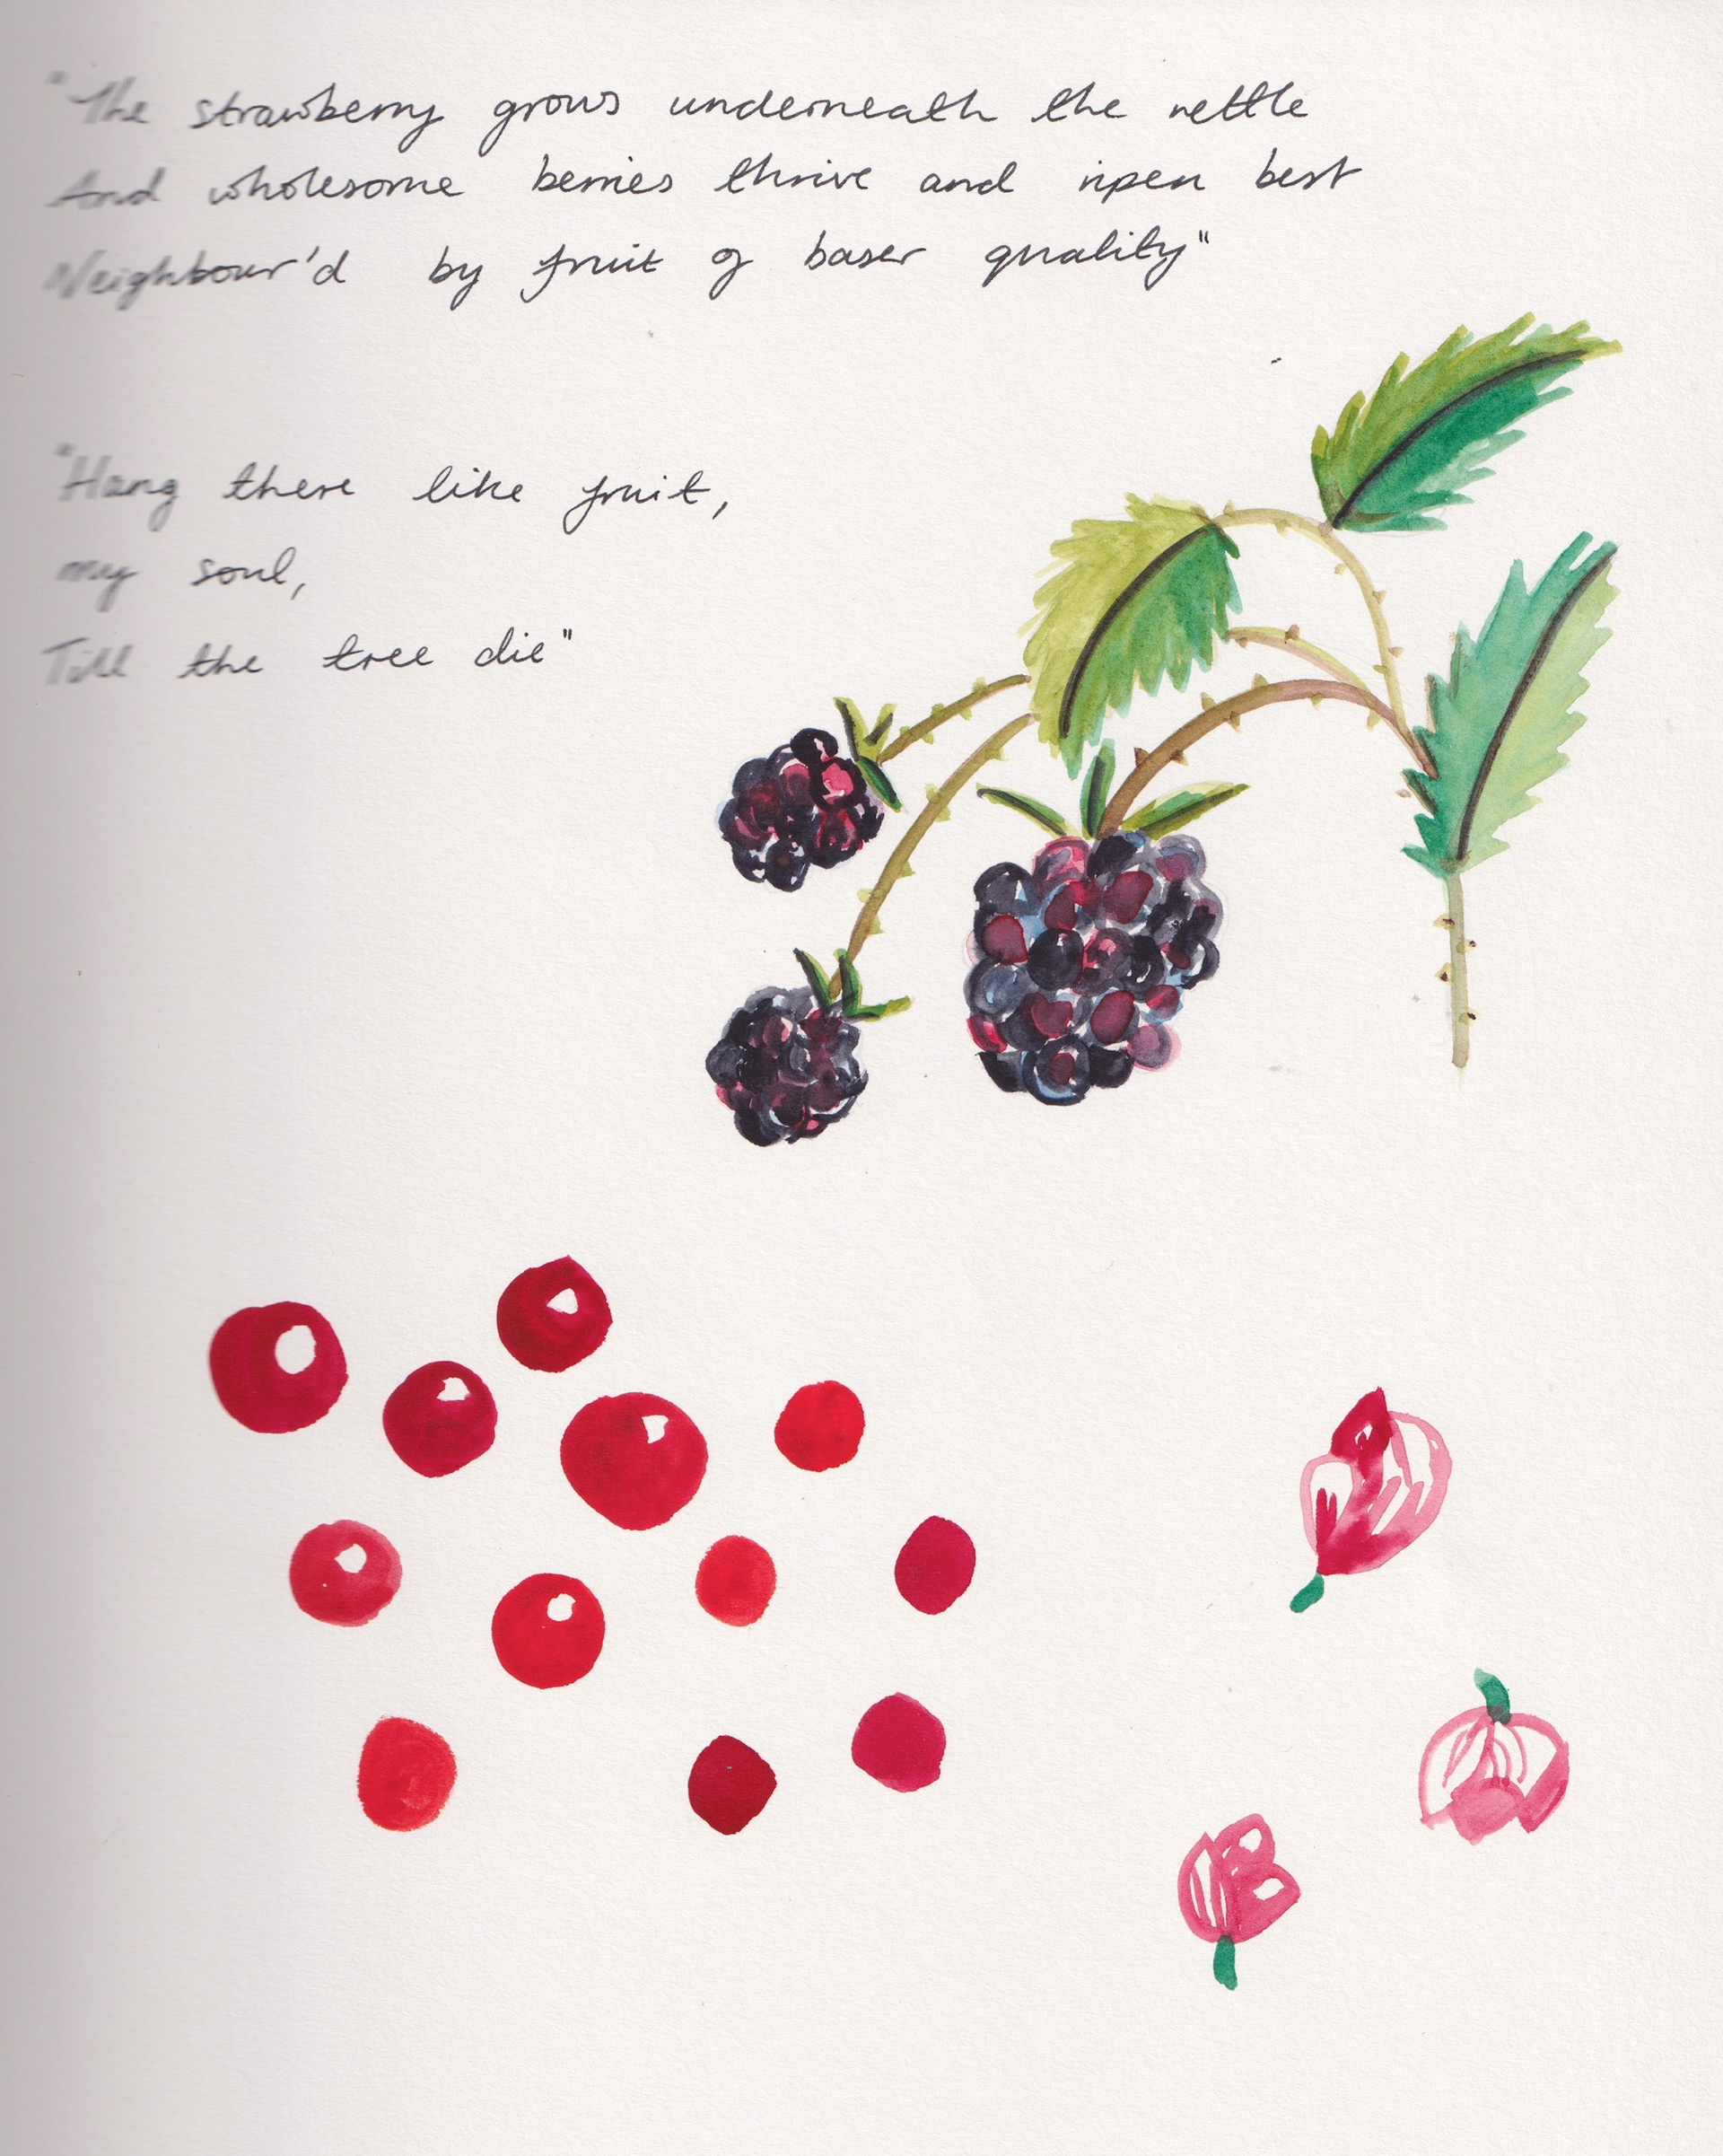 "The strawberry grows underneath the nettle
And wholesome berries thrive and ripen best
Neighbour'd by fruit of baser quality"
"Hang there like fruit,
my soul,
Till the tree die"